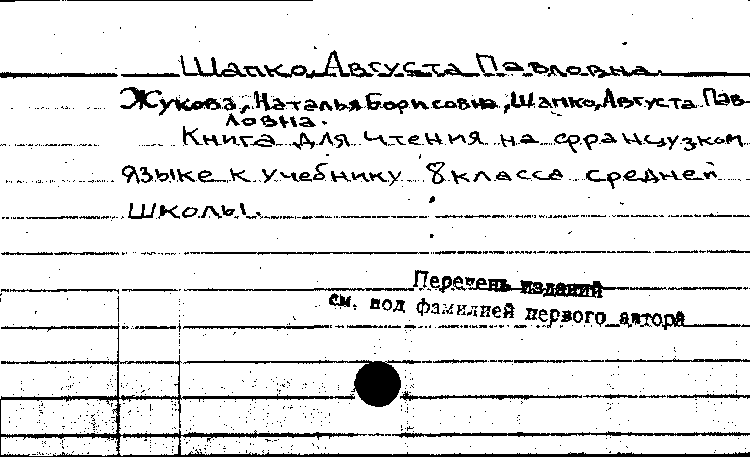 Шапко, Августа Павловна.
Жукова, Наталья Борисовна, Шапко, Августа Пав-
ловна.
Книга для чтения на французком
языке к учебнику 8 класса средней
школы.
Перечень изданий
см. под фамилией первого автора